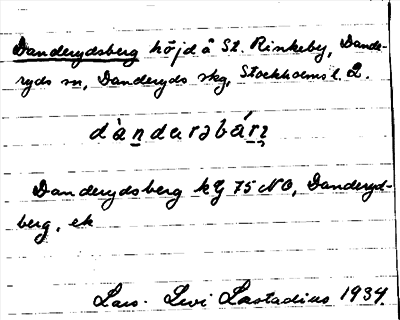 Danderydsberg höjd å St. Rinkeby, Dande-
ryds sn, Danderyds skg, Stockholms l. 2.
dàndərəbárj
Danderydsberg kg 75 NO, Danderyd-
berg, ek
Lars-Levi Læstadius 1934.